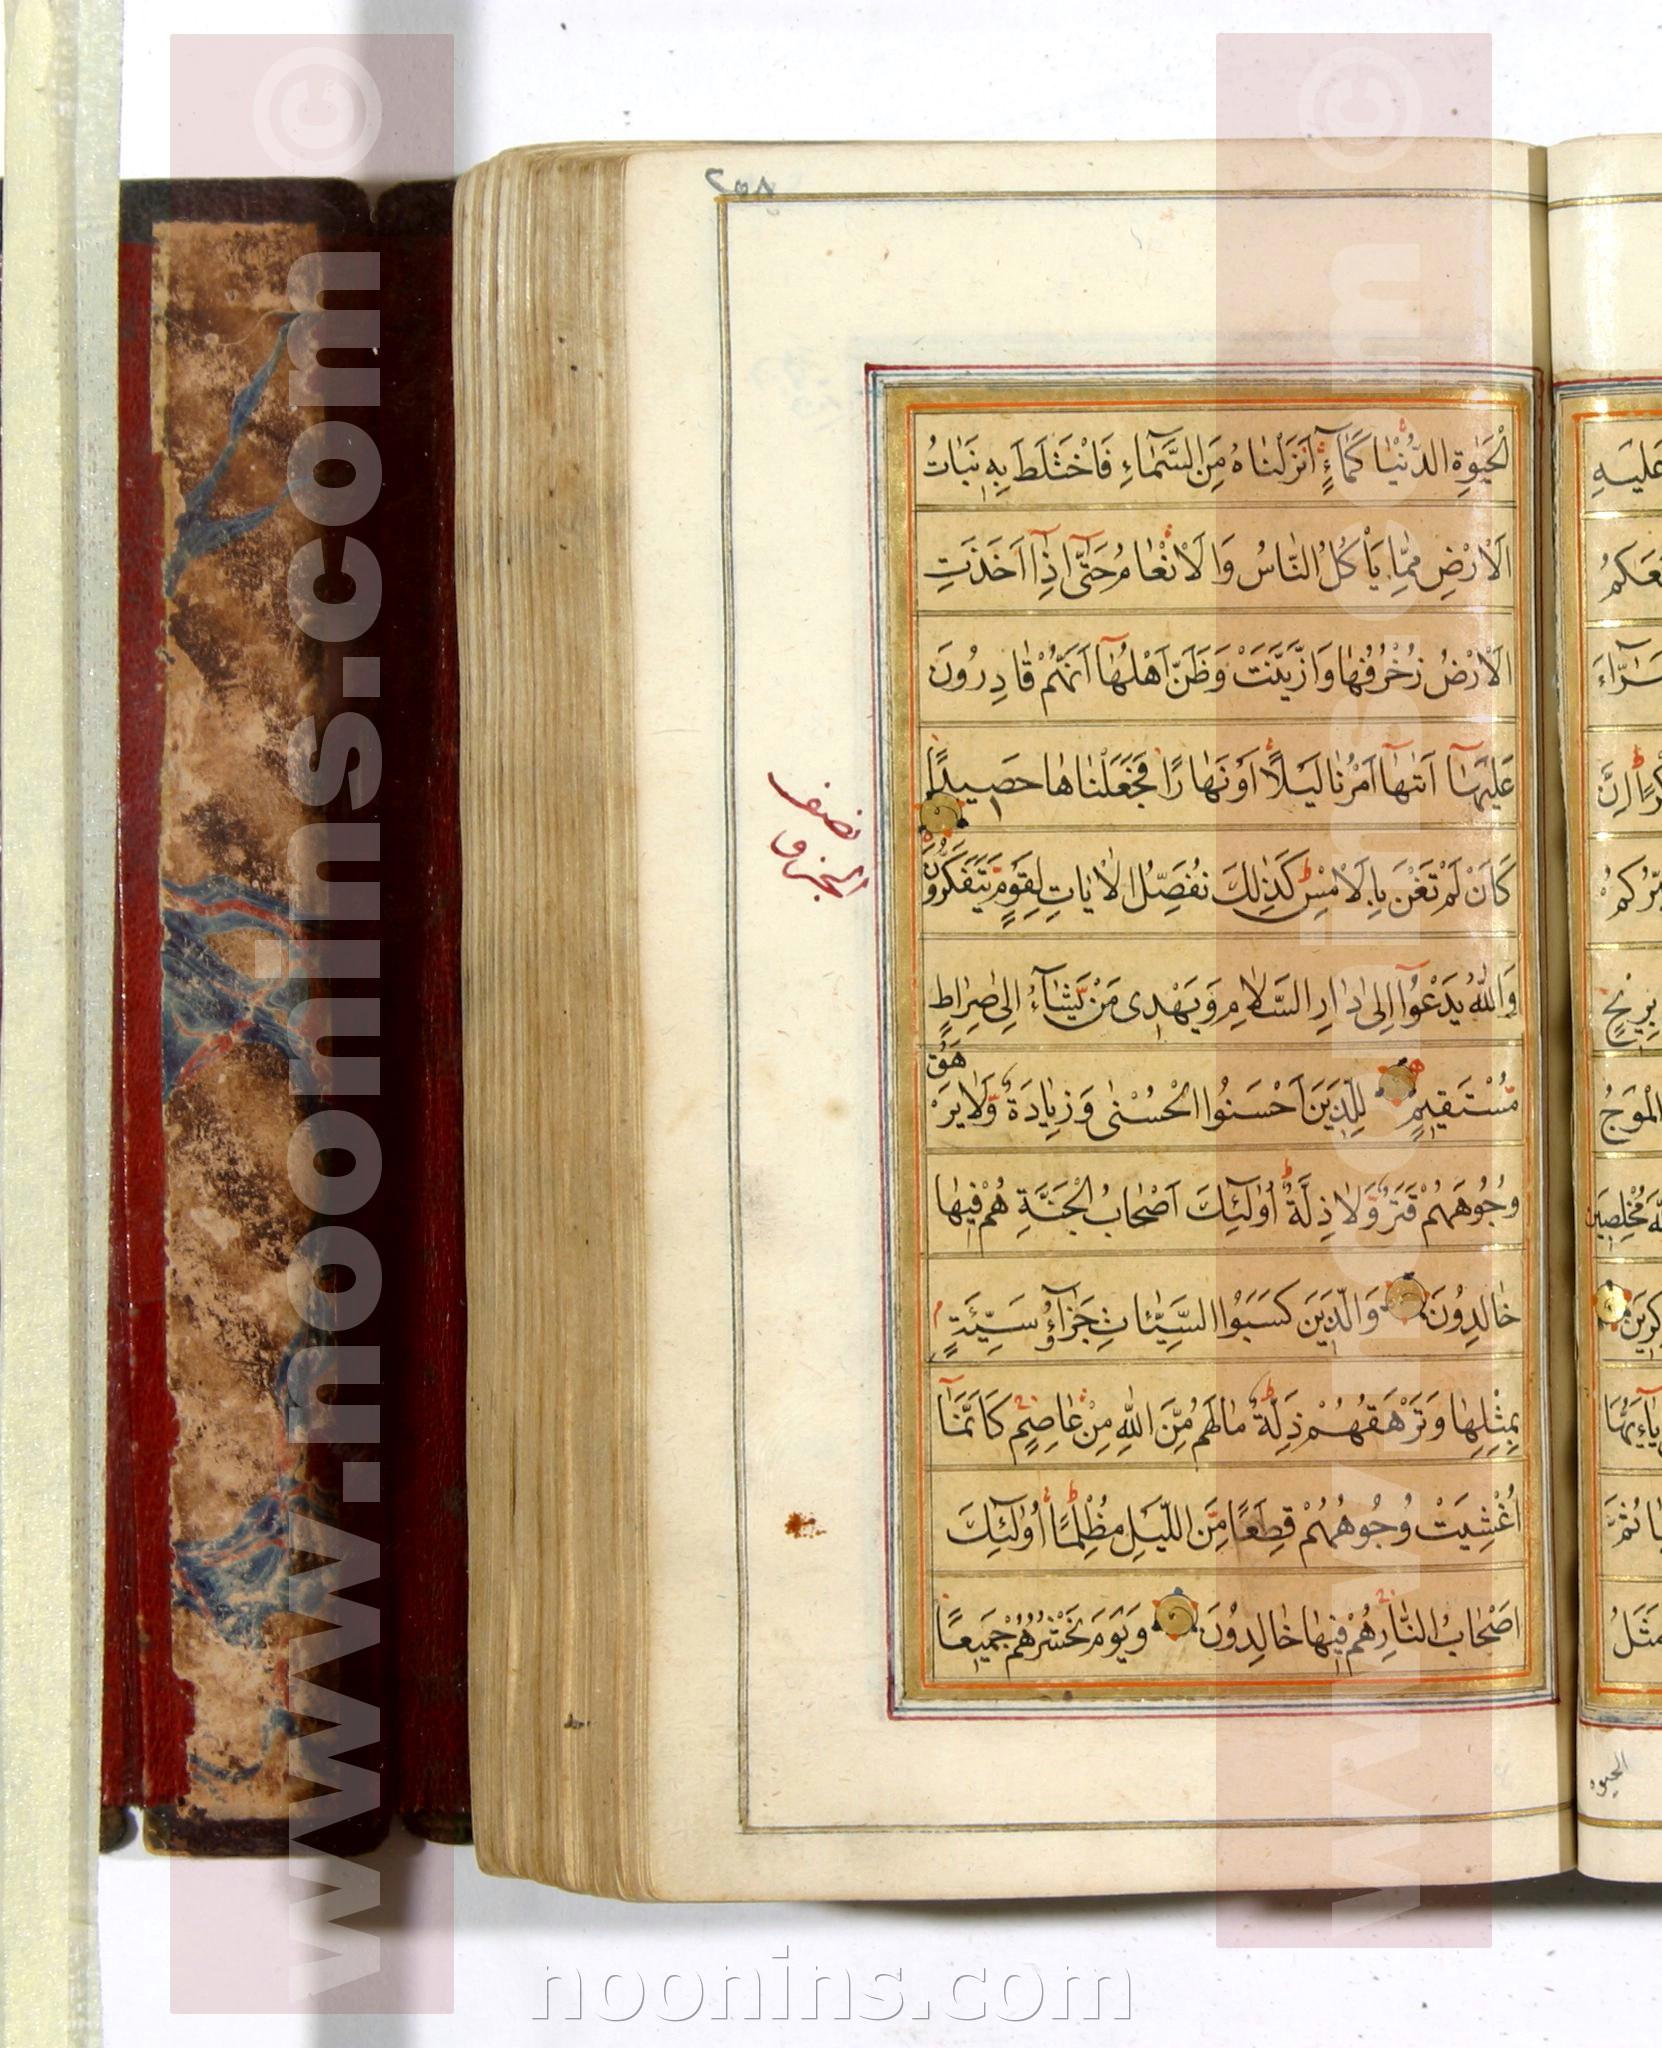 الْحَيٰوةِ الدُّنْيٰا كَمٰاءٍ اَنْزَلْنٰاهُ مِنَ السَّمٰاءِ فَاخْتَلَطَ بِهِ نَبٰاتُ
الْاَرْضِ مِمّٰا يَأْكُلُ النّٰاسُ وَالْاَنْعٰامُ حَتّٰى اِذٰا اَخَذَتِ
الْاَرْضُ زُخْرُفَهٰا وَازَّيَّنَتْ وَظَنَّ اَهْلُهٰا اَنَّهُمْ قٰادِرُونَ
عَلَيْهٰا اَتٰيهٰا اَمْرُنٰا لَيْلًا اَوْ نَهٰارًا فَجَعَلْنٰاهٰا حَصِيدًا
كَاَنْ لَمْ تَغْنَ بِالْاَمْسِ كَذٰلِكَ نُفَصِّلُ الْاٰيٰاتِ لِقَوْمٍ يَتَفَكَّرُونَ
وَاللّٰهُ يَدْعُوا اِلٰى دٰارِ السَّلٰامِ وَيَهْدِى مَنْ يَشٰاءُ اِلٰى صِرٰاطٍ
مُسْتَقِيمٍ لِلَّذِينَ اَحْسَنُوا الْحُسْنٰى وَزِيٰادَةٌ وَلٰا يَرْهَقُ
وُجُوهَهُمْ قَتَرٌ وَلٰا ذِلَّةٌ اُولٰئِكَ اَصْحٰابُ الْجَنَّةِ هُمْ فِيهٰا
خٰالِدُونَ وَالَّذِينَ كَسَبُوا السَّيِّئٰاتِ جَزٰاؤُ سَيِّئَةٍ
بِمِثْلِهٰا وَتَرْهَقُهُمْ ذِلَّةٌ مٰا لَهُمْ مِنَ اللّٰهِ مِنْ عٰاصِمٍ كَاَنَّمٰا
اُغْشِيَتْ وُجُوهُهُمْ قِطَعًا مِنَ اللَّيْلِ مُظْلِمًا اُولٰئِكَ
اَصْحٰابُ النّٰارِ هُمْ فِيهٰا خٰالِدُونَ وَيَوْمَ نَحْشُرُهُمْ جَمِيعًا
نصف
الجزو
عَلَيْهِ
سَرّٰاءَ
الْمَوْجُ
مُخْلِصِينَ
مَثَلُ
الحيوة
www.noonins.com ©
www.noonins.com ©
noonins.com